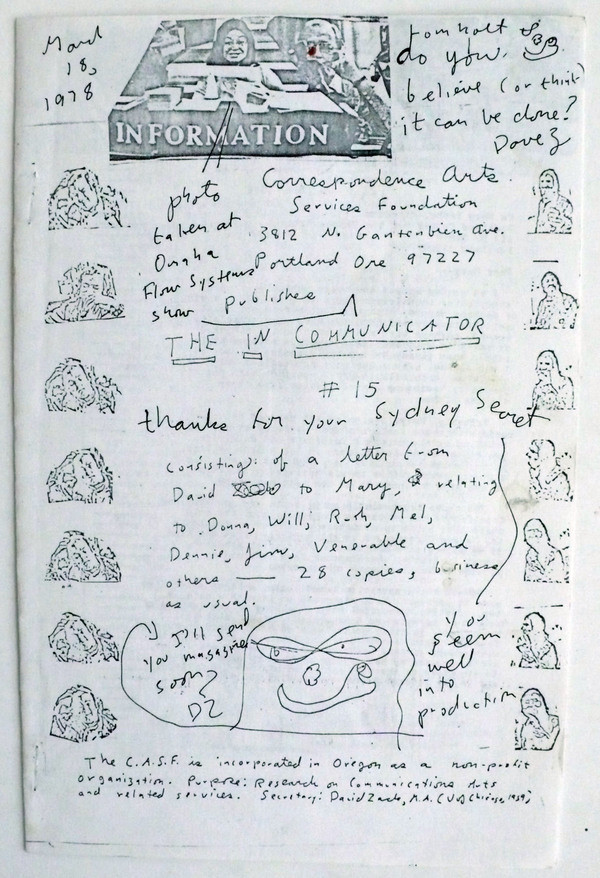 March
18,
1978
INFORMATION
tom holt
do you
believe (or think)
it can be done?
Dave Z
photo
taken at
Omaha
Flow Systems
show
Correspondence Arts
Services Foundation
3812 N. Gantenbien Ave.
Portland Ore 97227
Publishes
THE IN COMMUNICATOR
# 15
thanks for your Sydney Secret
Consisting: of a letter from
David to Mary, & relating
to Donna, Will, Ruth, Mel,
Dennie, Jim, Venerable and
others — 28 copies, business
as usual.
I'll send
you magazines
soon?
DZ
You
seem
well
into
production
The C.A.S.F. is incorporated in Oregon as a non-profit
organization. Purpose: Research on Communications Arts
and related services. Secretary: David Zack, M.A. (U of Chicago, 1959)